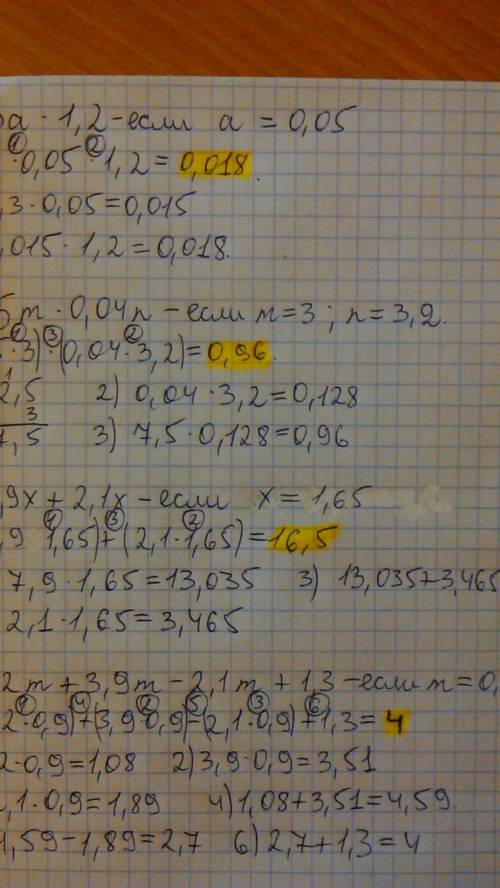 a · 1,2 - если a = 0,05
① · 0,05 ② · 1,2 = 0,018.
,3 · 0,05 = 0,015
,015 · 1,2 = 0,018.
5m · 0,04n - если m = 3 ; n = 3,2.
① · 3) ③ · (0,04 ② · 3,2) = 0,96.
1
2,5 2) 0,04 · 3,2 = 0,128
3
7,5 3) 7,5 · 0,128 = 0,96
,9x + 2,1x - если x = 1,65
,9 ① 1,65) ③ + (2,1 ② · 1,65) = 16,5
7,9 · 1,65 = 13,035 3) 13,035 + 3,465
2,1 · 1,65 = 3,465
2m + 3,9m - 2,1m + 1,3 - если m = 0,
2 ① · 0,9) ④ + (3,9 ② · 0,9) ⑤ - (2,1 ③ · 0,9) ⑥ + 1,3 = 4
2 · 0,9 = 1,08 2) 3,9 · 0,9 = 3,51
2,1 · 0,9 = 1,89 4) 1,08 + 3,51 = 4,59
4,59 - 1,89 = 2,7 6) 2,7 + 1,3 = 4